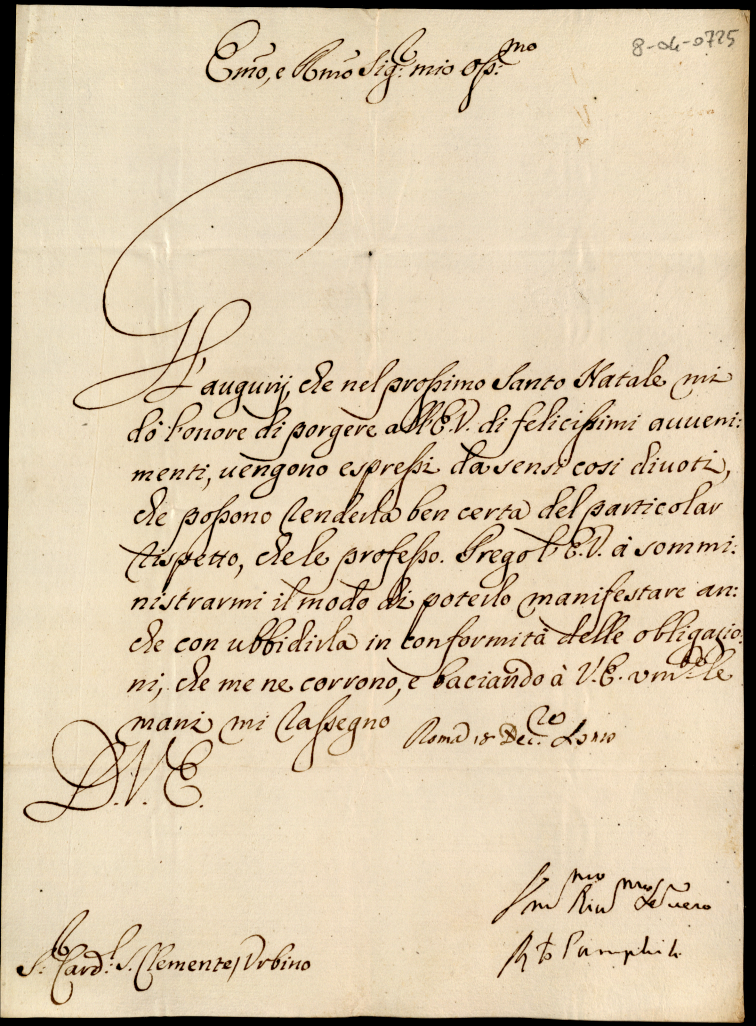 8-04-0725
Emo, e Rmo Sig.r mio oss.mo
Gl'augurij, che nel prossimo Santo Natale mi
dó l'onore di porgere all'E.V. di felicissimi auueni:
menti, uengono espressi da sensi cosi diuoti,
che possono renderla ben certa del particolar
rispetto, che le professo. Prego l'E.V. à sommi:
nistrarmi il modo di poterlo manifestare an:
che con ubbidirla in conformità delle obligazio:
ni, che me ne corrono, e baciando à V.E. um.te le
mani mi rassegno Roma 18 Dec.re
D. V. E.
Seruero
Pamphili
S.r Card.l S. Clemente, Urbino